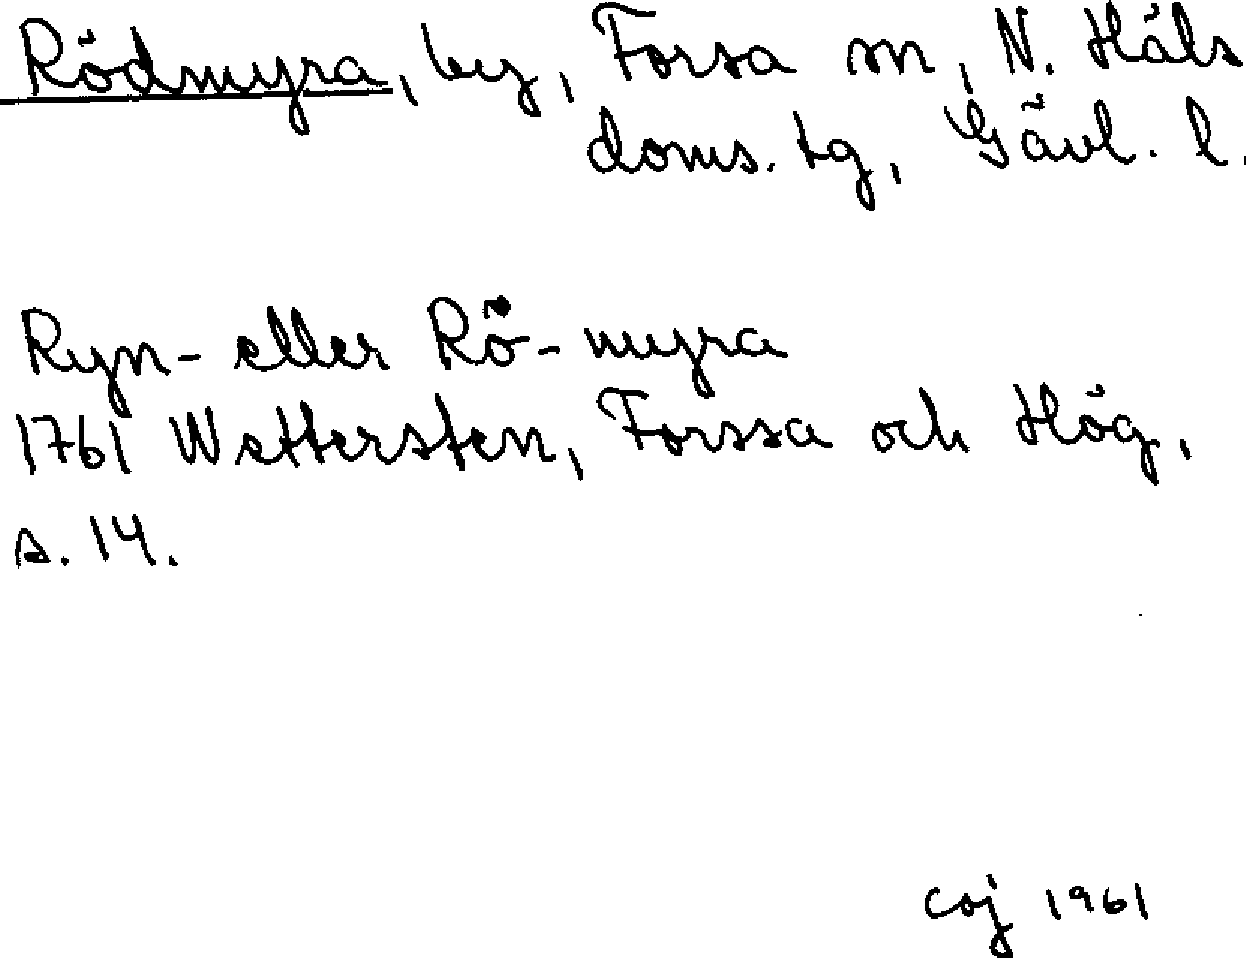 Rödmyra, by, Forsa sn, N. Häls
doms. tg, Gävl. l.
Ryn- eller Rö- myra
1761 Wettersten, Forssa och Hög,
s. 14.
coj 1961